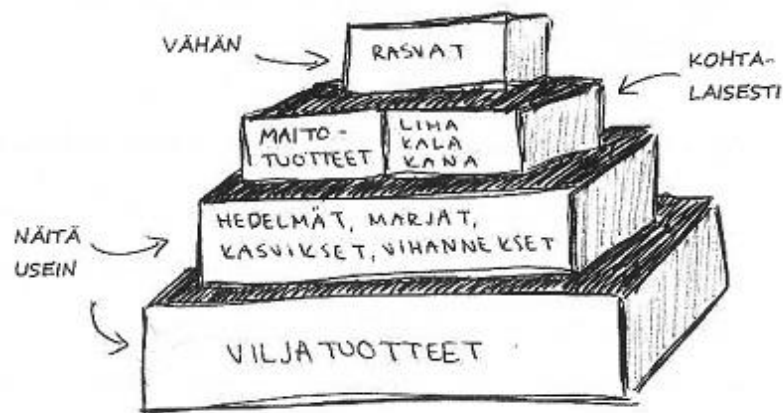 VÄHÄN
RASVAT
KOHTA-
LAISESTI
MAITO-
TUOTTEET
LIHA
KALA
KANA
NÄITÄ
USEIN
HEDELMÄT, MARJAT,
KASVIKSET, VIHANNEKSET
VILJATUOTTEET